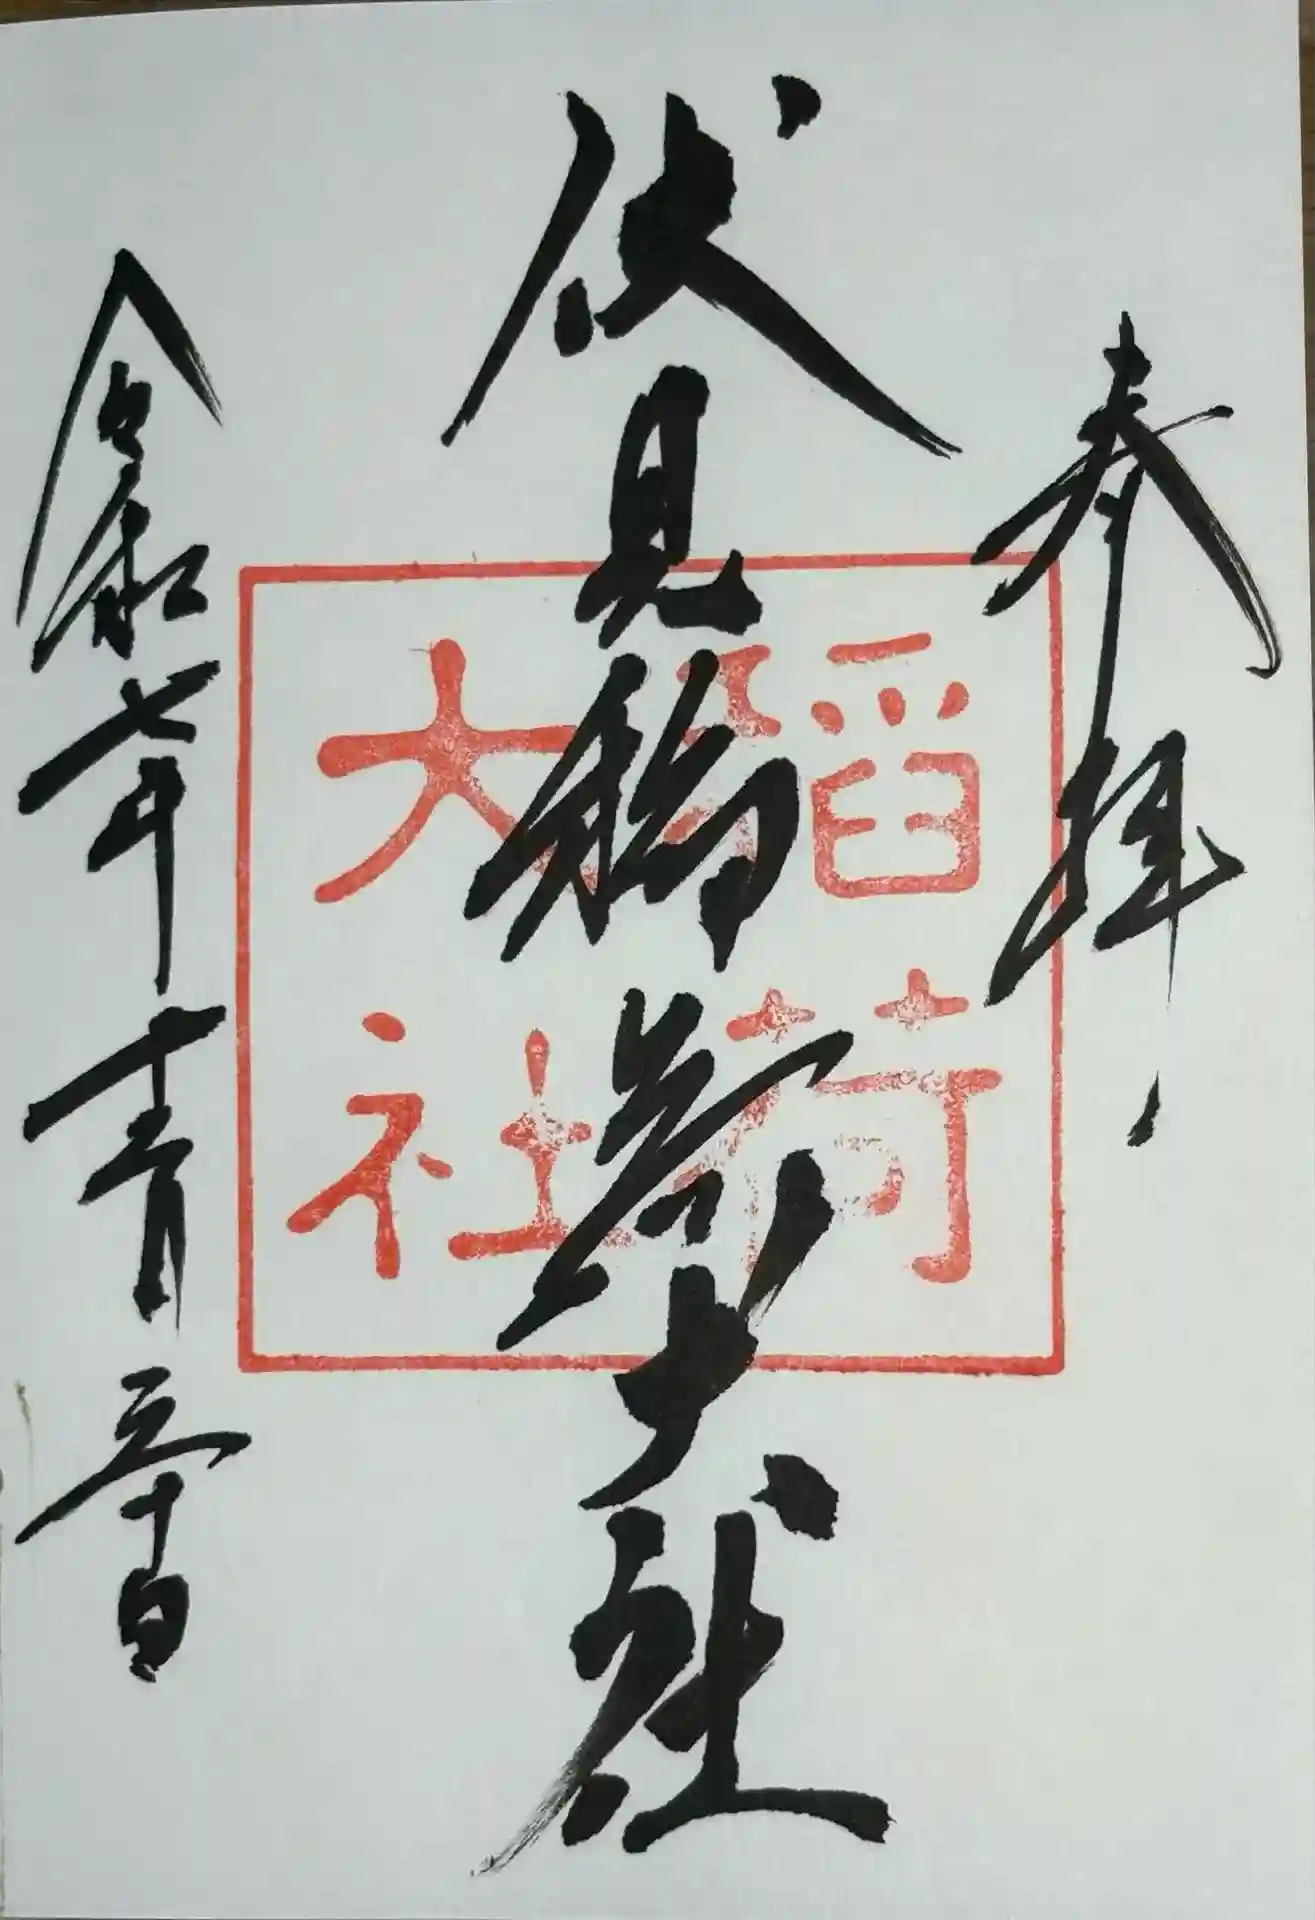 奉拝
伏見稲荷大社
稲荷
大社
令和七年十一月三十日